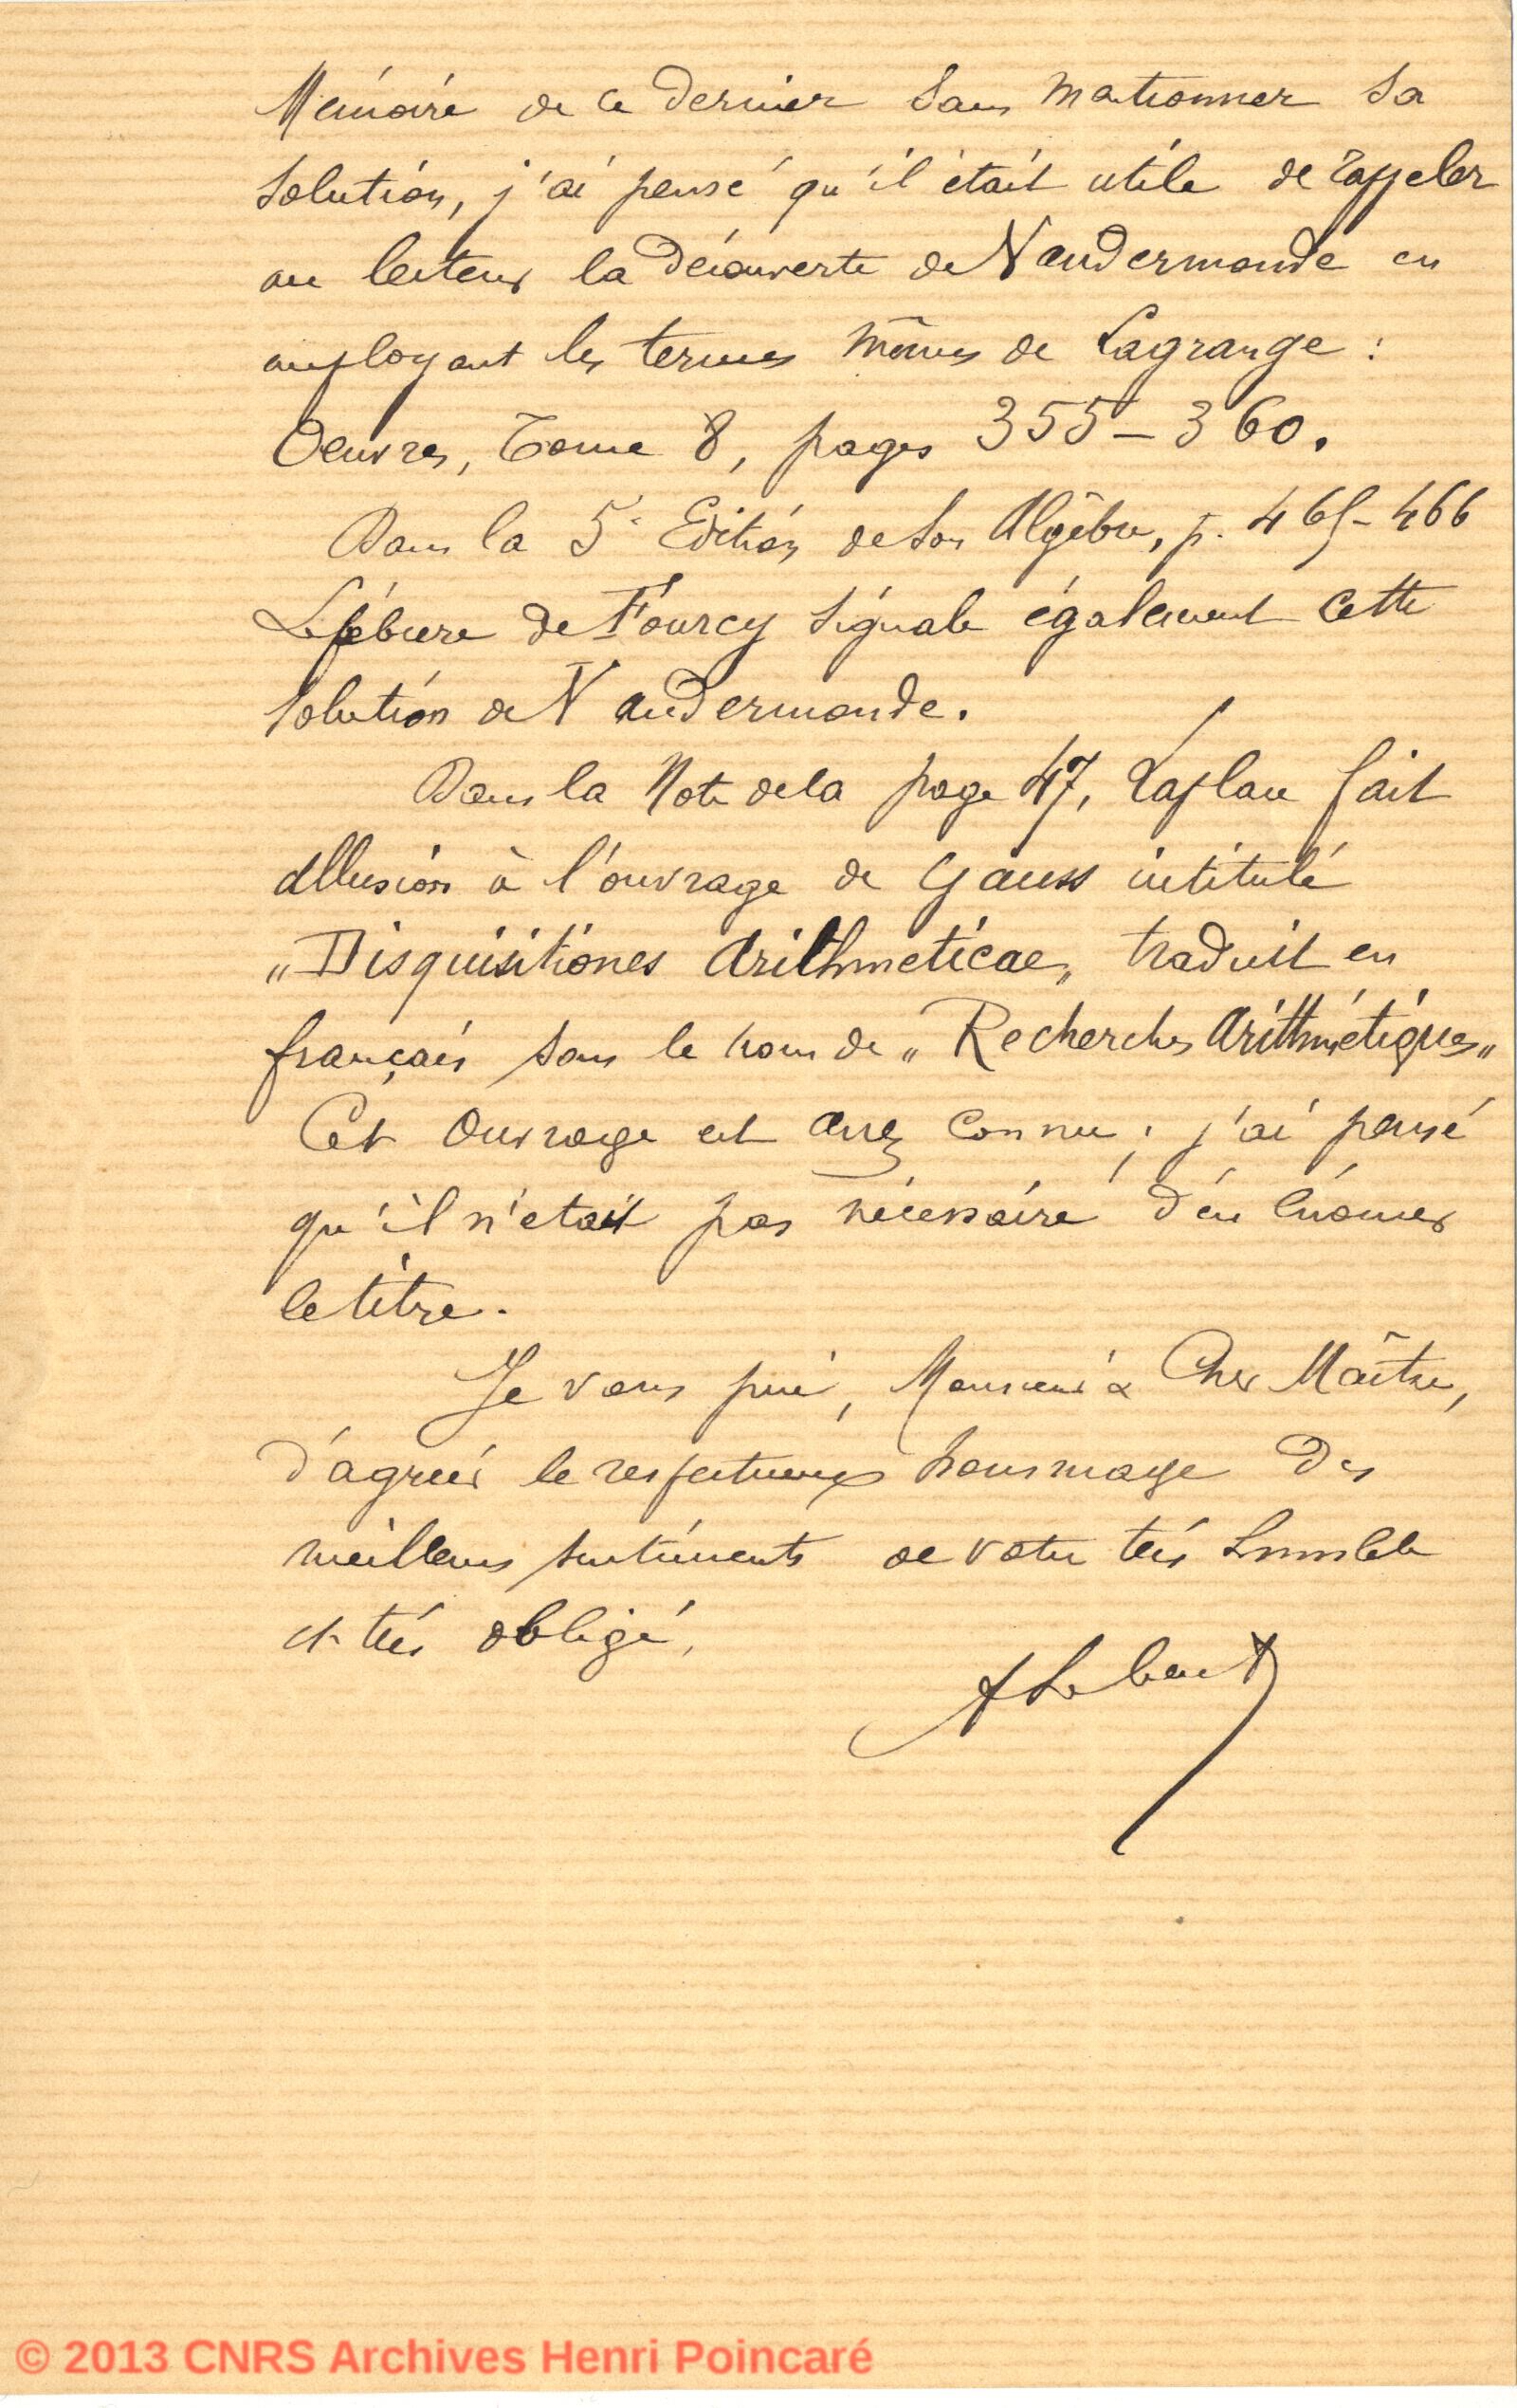 Mémoire de ce dernier sans mentionner sa
solution, j'ai pensé qu'il était utile de rappeler
au lecteur la découverte de Vandermonde en
employant les termes mêmes de Lagrange :
Oeuvres, Tome 8, pages 355-360.
Dans la 5e Edition de son Algèbre, p. 465-466
Lefébure de Fourcy signale également cette
solution de Vandermonde.
Dans la Note de la page 47, Laplace fait
allusion à l'ouvrage de Gauss intitulé
„Disquisitiones Arithmeticae„ traduit en
français sous le nom de „Recherches Arithmétiques„
Cet ouvrage est assez connu ; j'ai pensé
qu'il n'était pas nécessaire d'en énoncer
le titre.
Je vous prie, Monsieur & Cher Maître,
d'agréer le respectueux hommage des
meilleurs sentiments de votre très humble
et très obligé,
A Lebeuf
© 2013 CNRS Archives Henri Poincaré